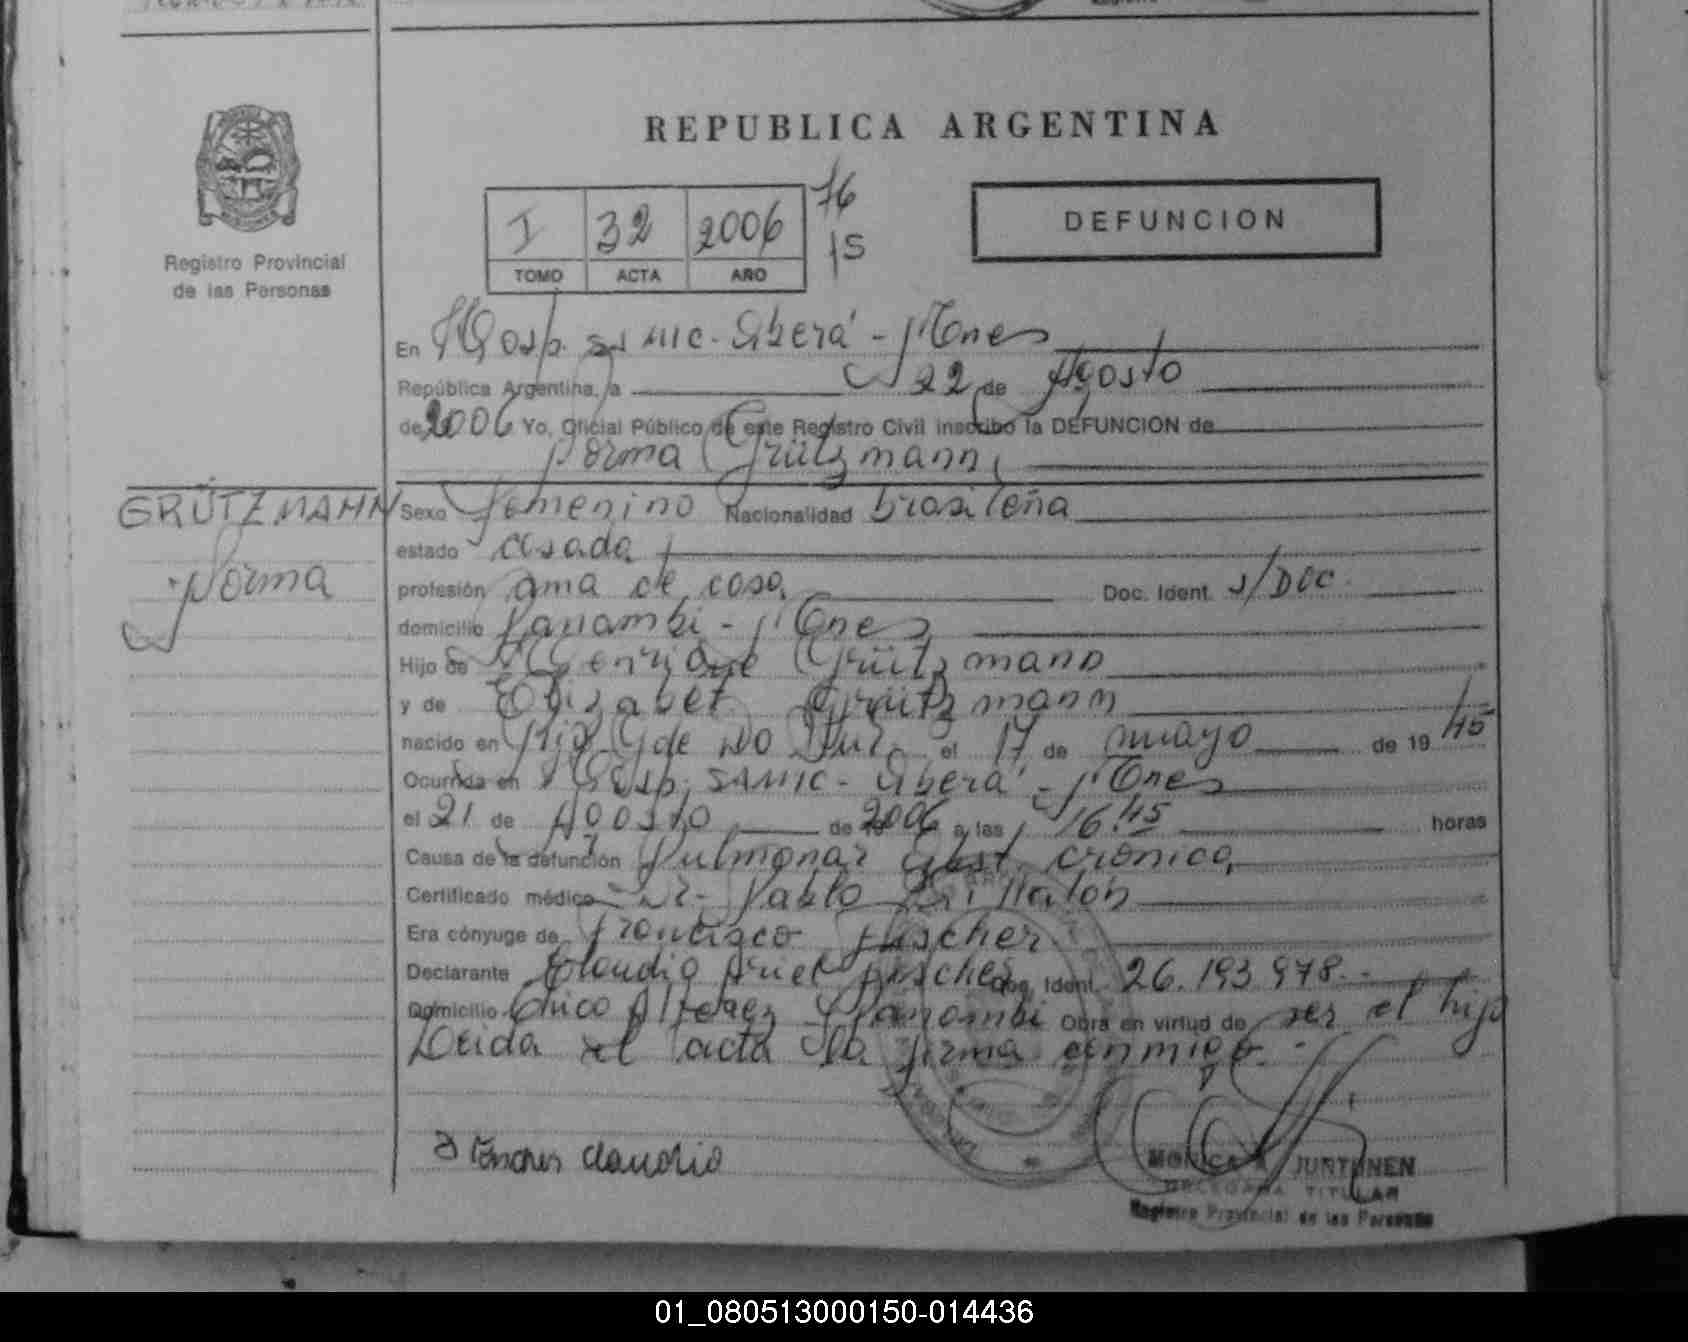 REPUBLICA ARGENTINA
Registro Provincial
de las Personas
I 32 2006
TOMO ACTA AÑO
76
15
DEFUNCION
En Hosp. SAMIC - Oberá - Mnes
República Argentina, a 22 de Agosto
de 2006 Yo, Oficial Público de este Registro Civil inscribo la DEFUNCION de
Norma Grützmann
GRÜTZMANN
Norma
Sexo Femenino Nacionalidad brasileña
estado casada
profesión ama de casa Doc. Ident. s/Doc.
domicilio Panambi - Mnes
Hijo de Henrique Grützmann
y de Elizabet Grützmann
nacido en Rio Gde Do Sul el 17 de mayo de 1945
Ocurrida en Hosp. SAMIC - Oberá - Mnes
el 21 de Agosto de 2006 a las 16.45 horas
Causa de la defunción Pulmonar Obst. crónica
Certificado médico Dr. Pablo
Era cónyuge de Francisco
Declarante Claudio Ariel Doc. Ident. 26.193.978
Domicilio Chico Alferez - Panambi Obra en virtud de ser el hijo
Leida el acta la firma conmigo.
Claudio
MONICA JUNTUNEN
DELEGADA TITULAR
Registro Provincial de las Personas
01_080513000150-014436